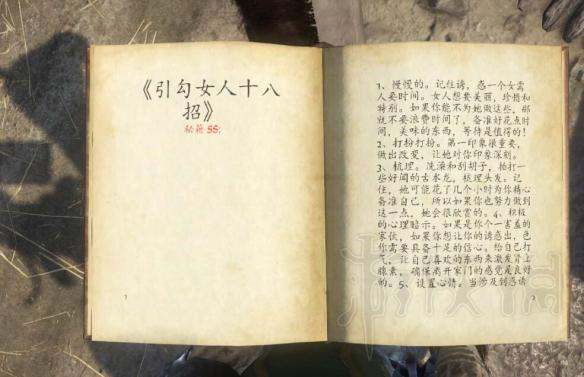 《引勾女人十八
招》
秘籍 SS:
1
1、慢慢的。记住诱,惑一个女需
人要时间。女人想要美丽,珍惜和
特别。如果你能不为她做这些,那
就不要浪费时间了,备准好花点时
间,美味的东西,等待是值得的!
2、打扮打扮。第一印象很重要,
做出改变,让她对你印象深刻。
3、梳理。洗澡和刮胡子,拍打一
些好闻的古水龙,梳理头发。记
住,她可能花了几个小时为你精心
备准自己,所以如果你也努力做到
这一点,她会很欣赏的。4、积极
的心理暗示。如果你是个一害羞的
家伙,如果你想让你的诱惑出,色
你需要具备十足的信心。给自己打
气,让自己喜欢的东西来激发肾上
腺素,确保离开家门的感觉是良好
的。5、设置心情。当涉及到惑诱